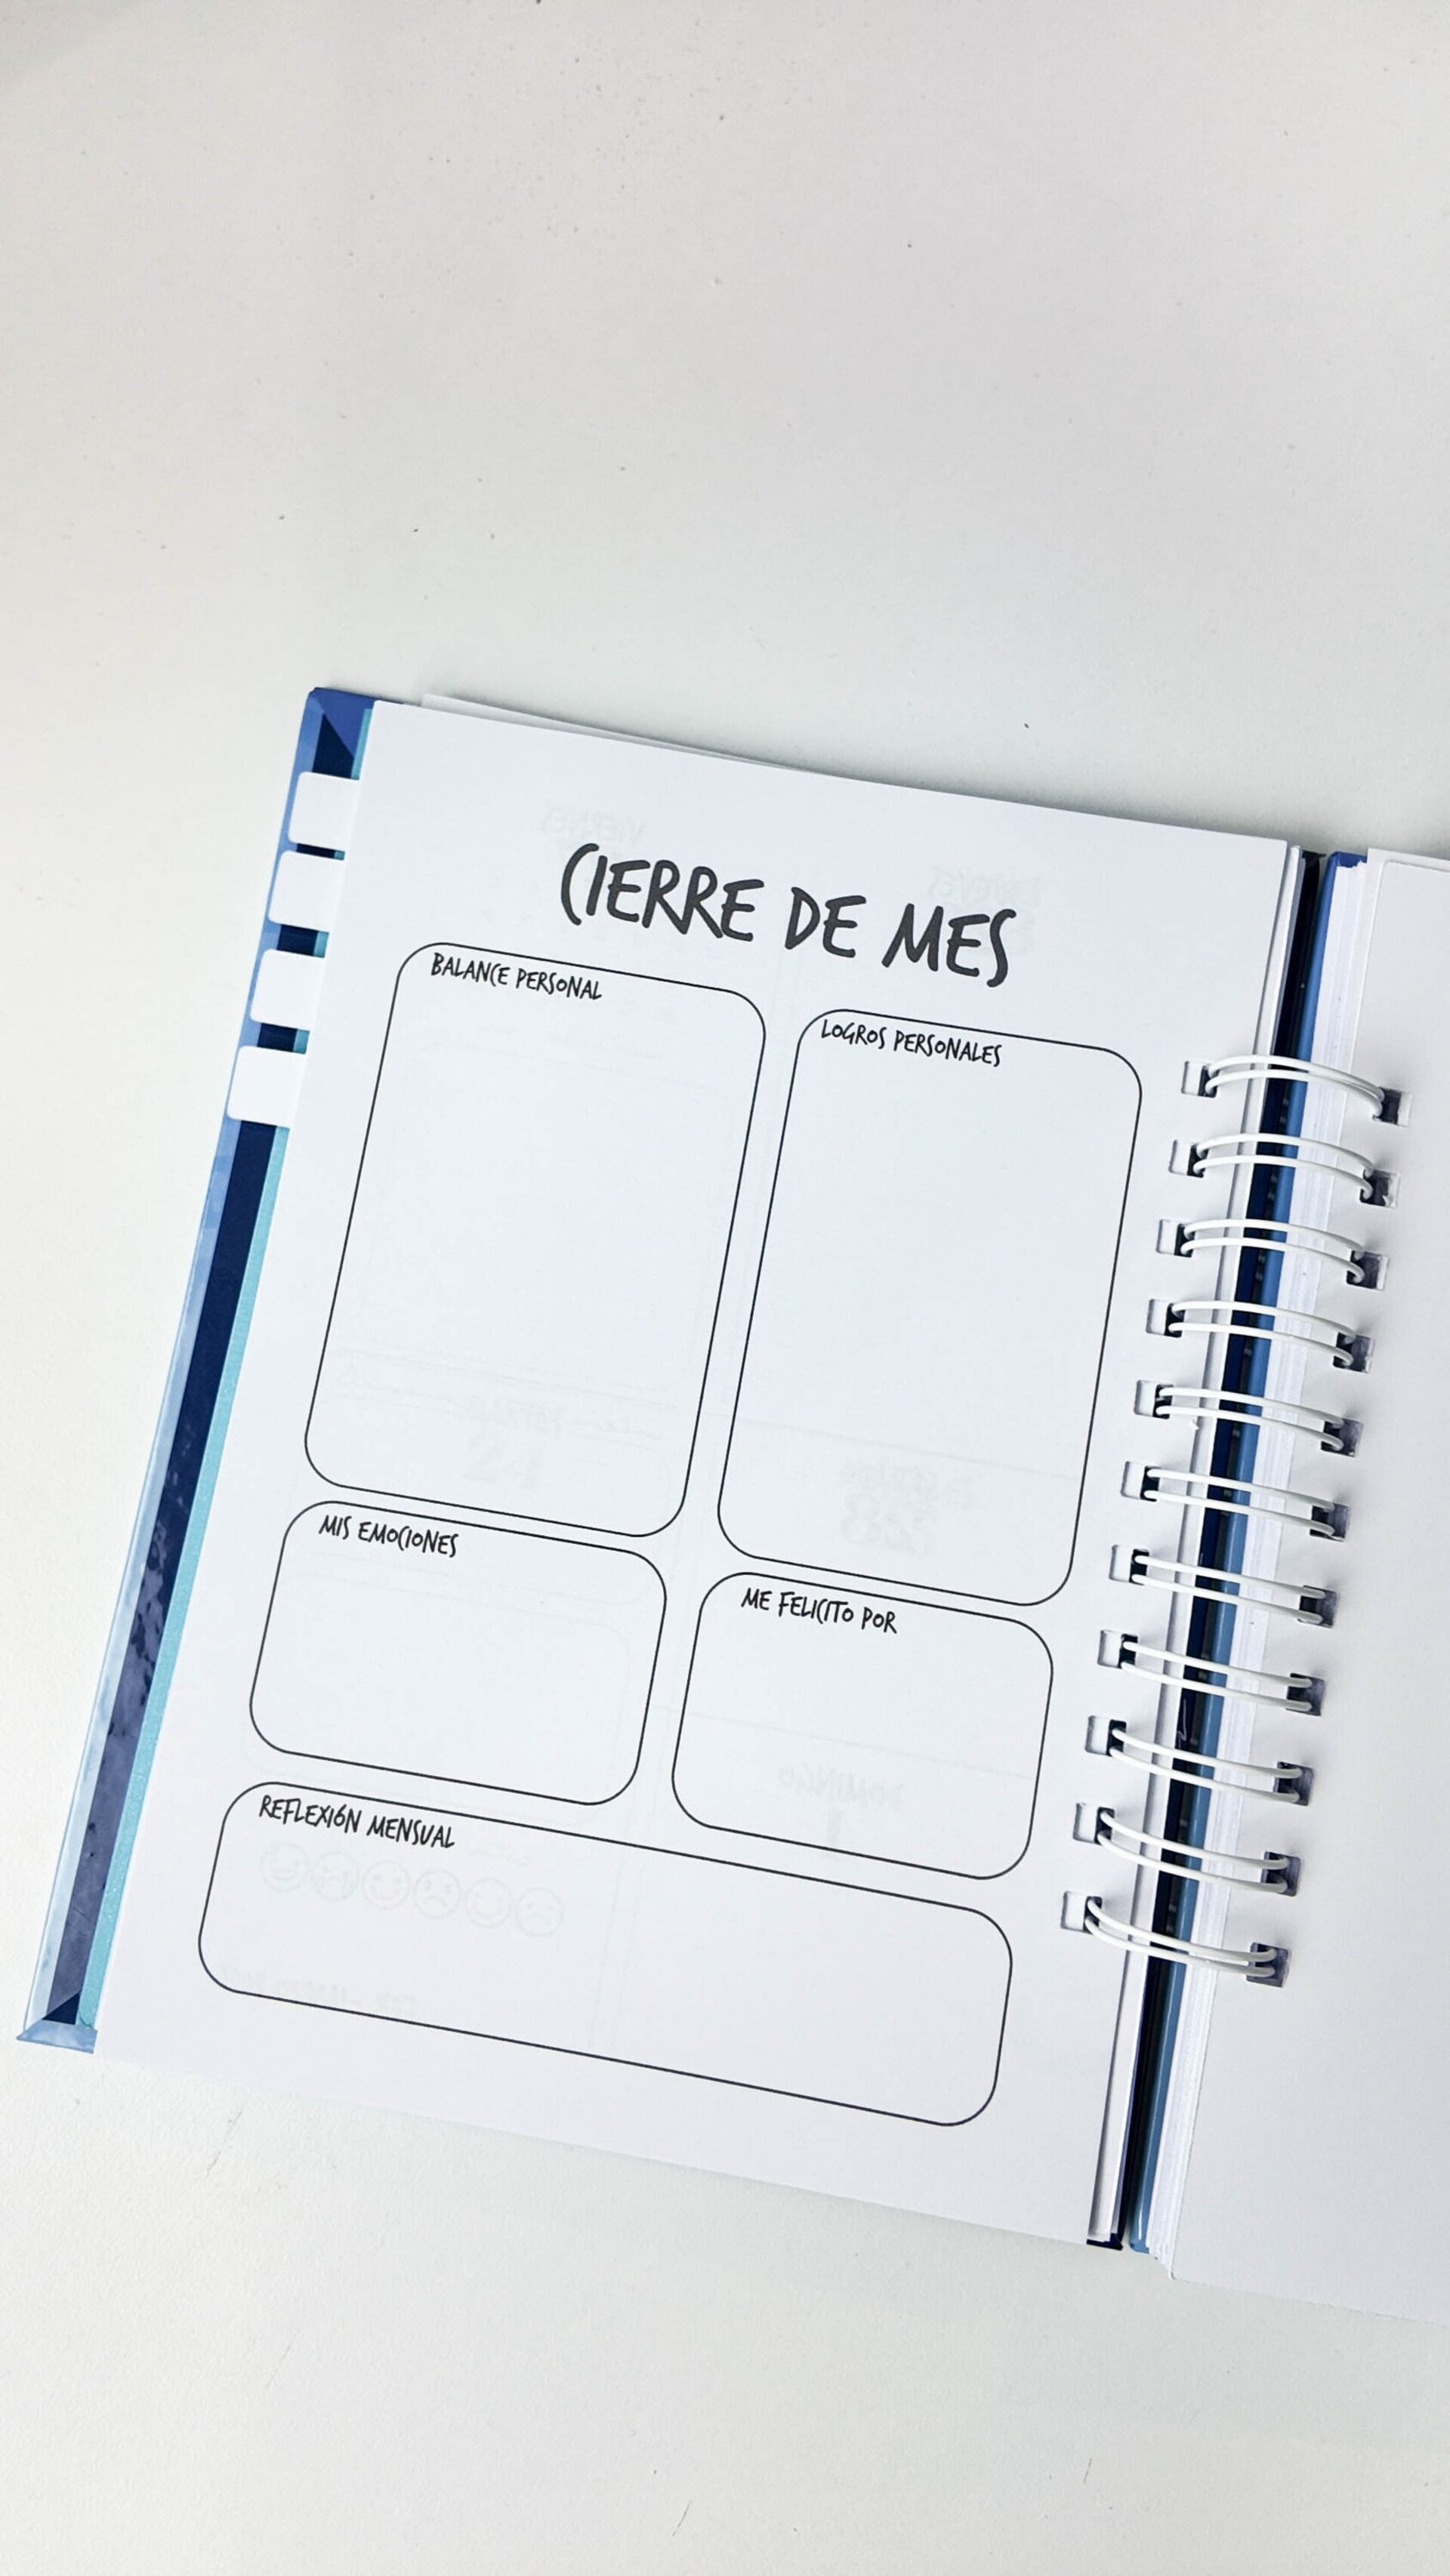 CIERRE DE MES
BALANCE PERSONAL
LOGROS PERSONALES
MIS EMOCIONES
ME FELICITO POR
REFLEXIÓN MENSUAL